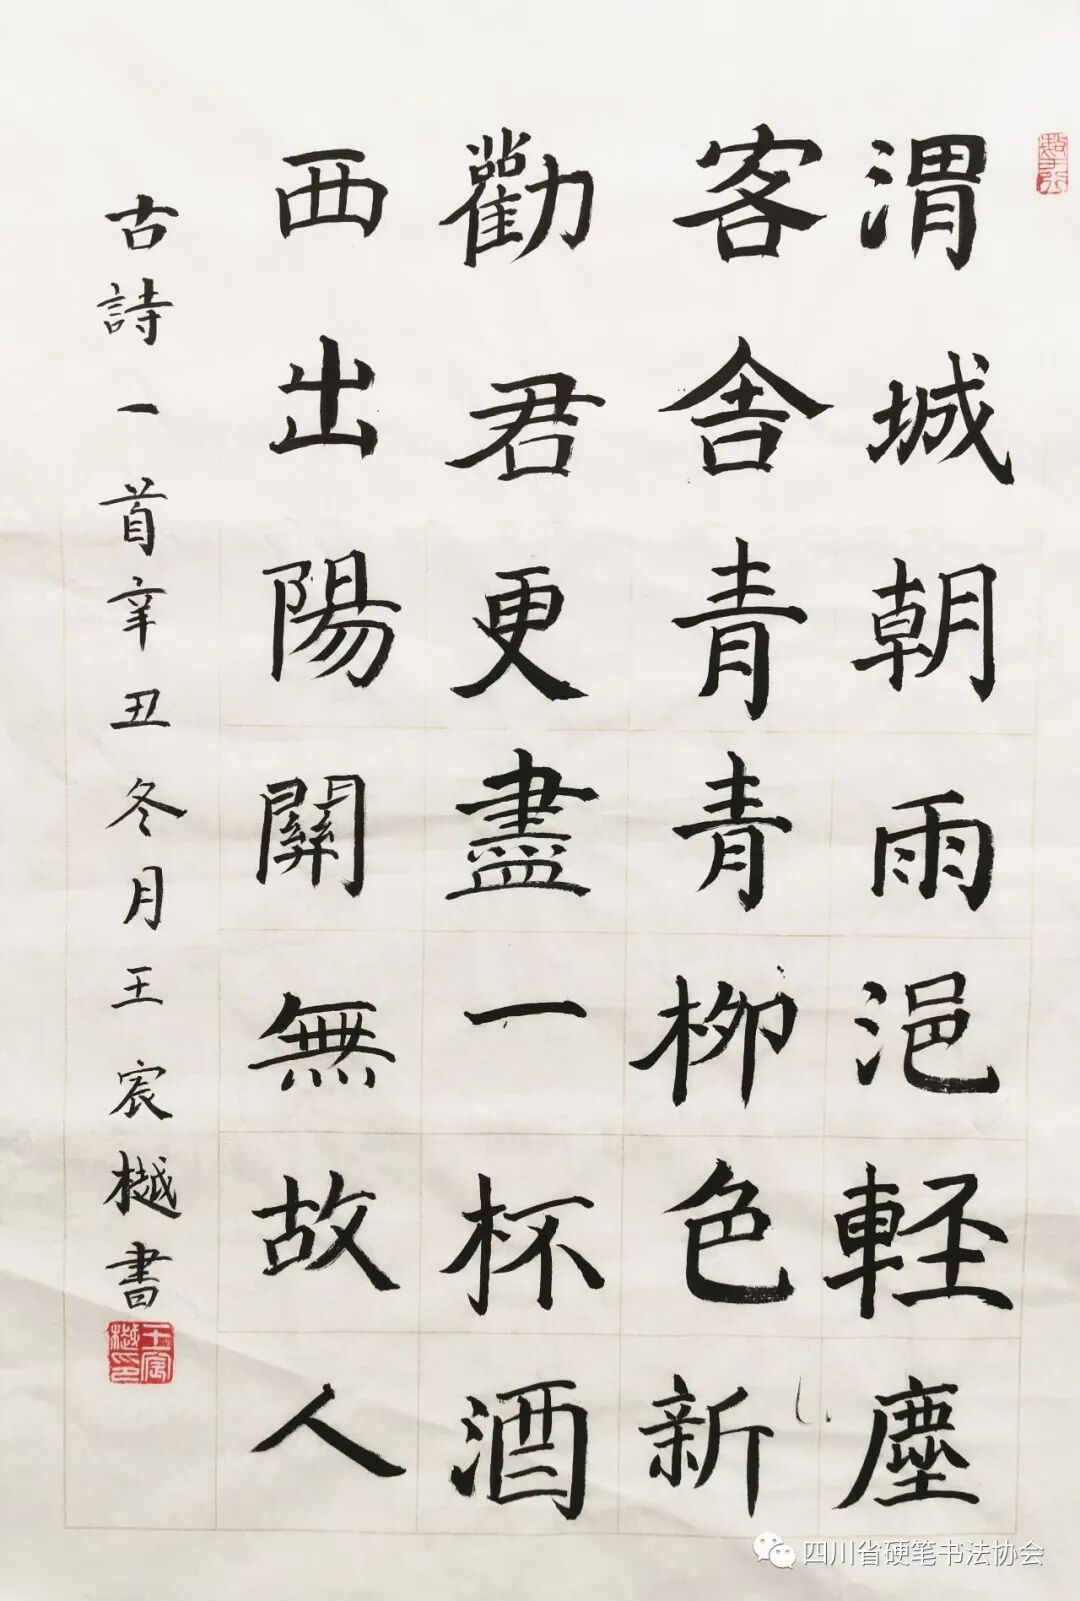 渭城朝雨浥輕塵
客舍青青柳色新
勸君更盡一杯酒
西出陽關無故人
古詩一首辛丑冬月王宸樾書
王宸樾印
四川省硬笔书法协会